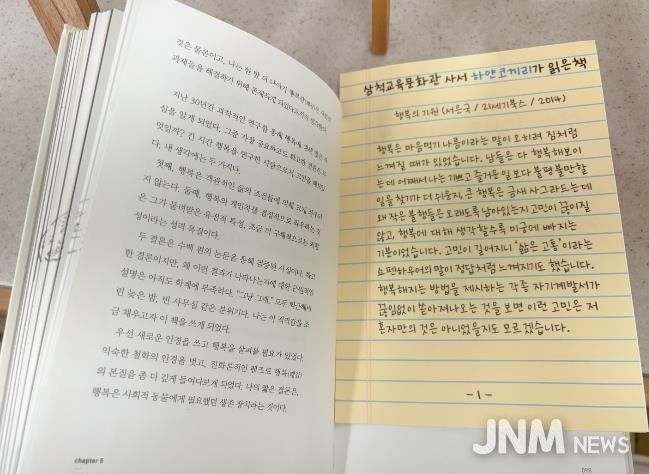 것은 물론이고, 나는 한 발 더 나아가
과제들을 해결하기 위해
지난 30년간 과학적인 연구를 통해 행복에 대한 많은 사
실을 알게 되었다. 그중 가장 중요하고도 확고한 결론은 무
엇일까? 긴 시간 행복을 연구한 사람으로서 고민을 해보았
다. 내 생각에는 두 가지다.
첫째, 행복은 객관적인 삶의 조건들에 의해 크게 좌우되
지 않는다. 둘째, 행복의 개인차를 결정적으로 좌우하는 것
은 그가 물려받은 유전적 특성, 조금 더 구체적으로는 외향
성이라는 성격 특질이다.
두 결론은 수백 편의 논문을 통해 검증된 사실이다. 확고
한 결론이지만, 왜 이런 결과가 나타나는지에 대한 근원적인
설명은 아직도 학계에 부족하다. "그냥 그래."
린 늦은 밤, 빈 사무실 같은 분위기다. 나는 이 적적함을 조
금 채우고자 이 책을 쓰게 되었다.
우선 새로운 안경을 쓰고 행복을 살펴볼 필요가 있었다.
익숙한 철학의 안경을 벗고, 진화론적인 렌즈로 행복(쾌감)
의 본질을 좀 더 깊게 들여다보게 되었다. 나의 짧은 결론은,
행복은 사회적 동물에게 필요했던 생존 장치라는 것이다.
chapter 5
삼척교육문화관 사서 하얀코끼리가 읽은책
행복의 기원 (서은국 / 21세기북스 / 2014)
행복은 마음먹기 나름이라는 말이 오히려 짐처럼
느껴질 때가 있었습니다. 남들은 다 행복해보이
는데 어째 나는 기쁘고 즐거운 일보다 불평불만할
일을 찾기가 더 쉬운지, 큰 행복은 금새 사그라드는데
왜 작은 불행들은 오래도록 남아있는지 고민이 끊이질
않고, 행복에 대해 생각할수록 미궁에 빠지는
기분이었습니다. 고민이 길어지니 '삶은 고통'이라는
쇼펜하우어의 말이 정답처럼 느껴지기도 했습니다.
행복해지는 방법을 제시하는 각종 자기계발서가
끊임없이 쏟아져나오는 것을 보면 이런 고민은 저
혼자만의 것은 아니었을지도 모르겠습니다.
- 1 -
JNM NEWS
093